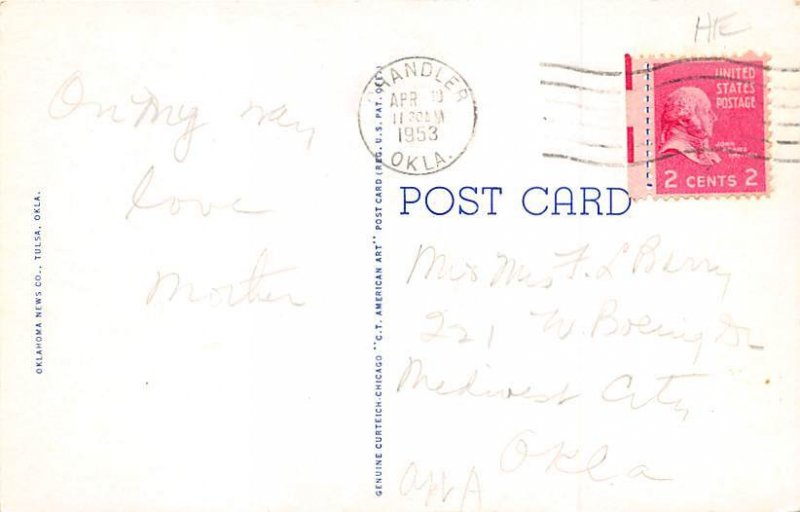 HE
CHANDLER
APR
11 30 AM
1953
OKLA.
UNITED
STATES
POSTAGE
JOHN
ADAMS
2 CENTS 2
On my way
love
Mother
OKLAHOMA NEWS CO., TULSA, OKLA.
GENUINE CURTEICH-CHICAGO "C.T. AMERICAN ART" POST CARD (REG. U.S. PAT. OFF.)
POST CARD
Mr Mrs F. L Barry
221 W. Boeing Dr
Medwest City
Okla
Apt A